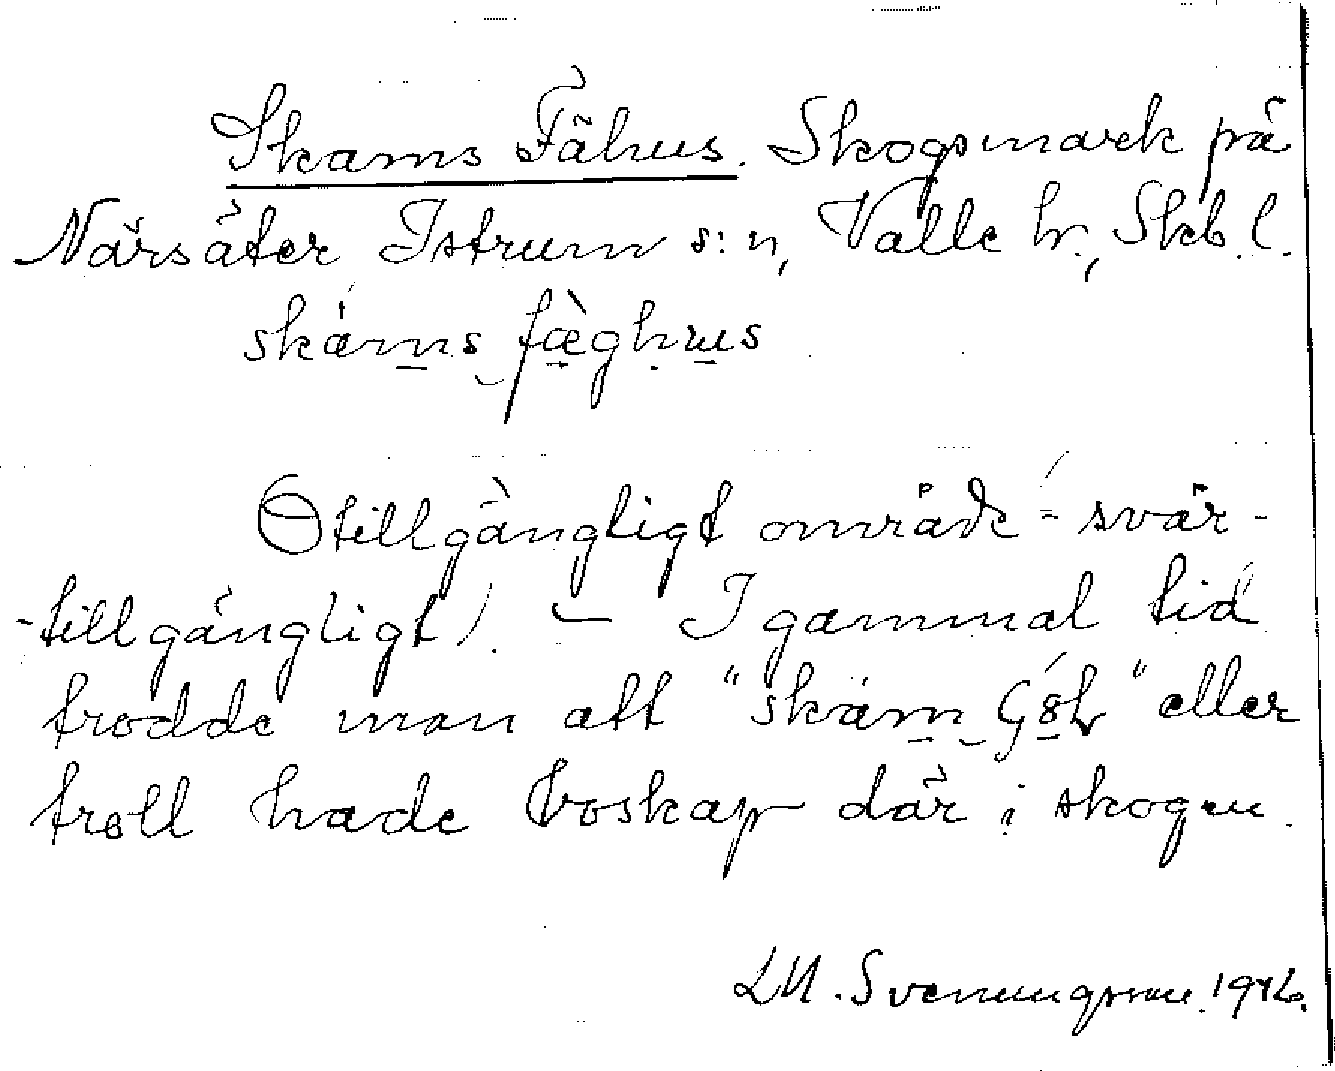 Skams Fähus. Skogsmark på
Närsäter Istrum s:n, Valle hr., Skb. l.
skáms fæ̀ghus
Otillgängligt område - svår-
-tillgängligt). — I gammal tid
trodde man att "skäm" eller
troll hade boskap där i skogen.
LM. Svenungsson.